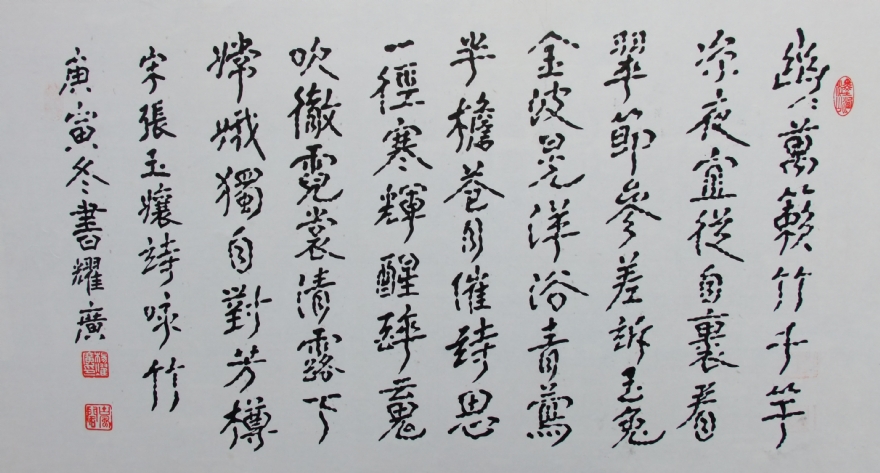 幽〻萬籟竹千竿
凉夜宜從月裏看
翠節參差訴玉兔
金波晃洋浴青鸞
半檐蒼月催詩思
一徑寒輝醒醉魂
吹徹霓裳清露下
嫦娥獨自對芳樽
宋張玉孃詩咏竹
庚寅冬書耀廣